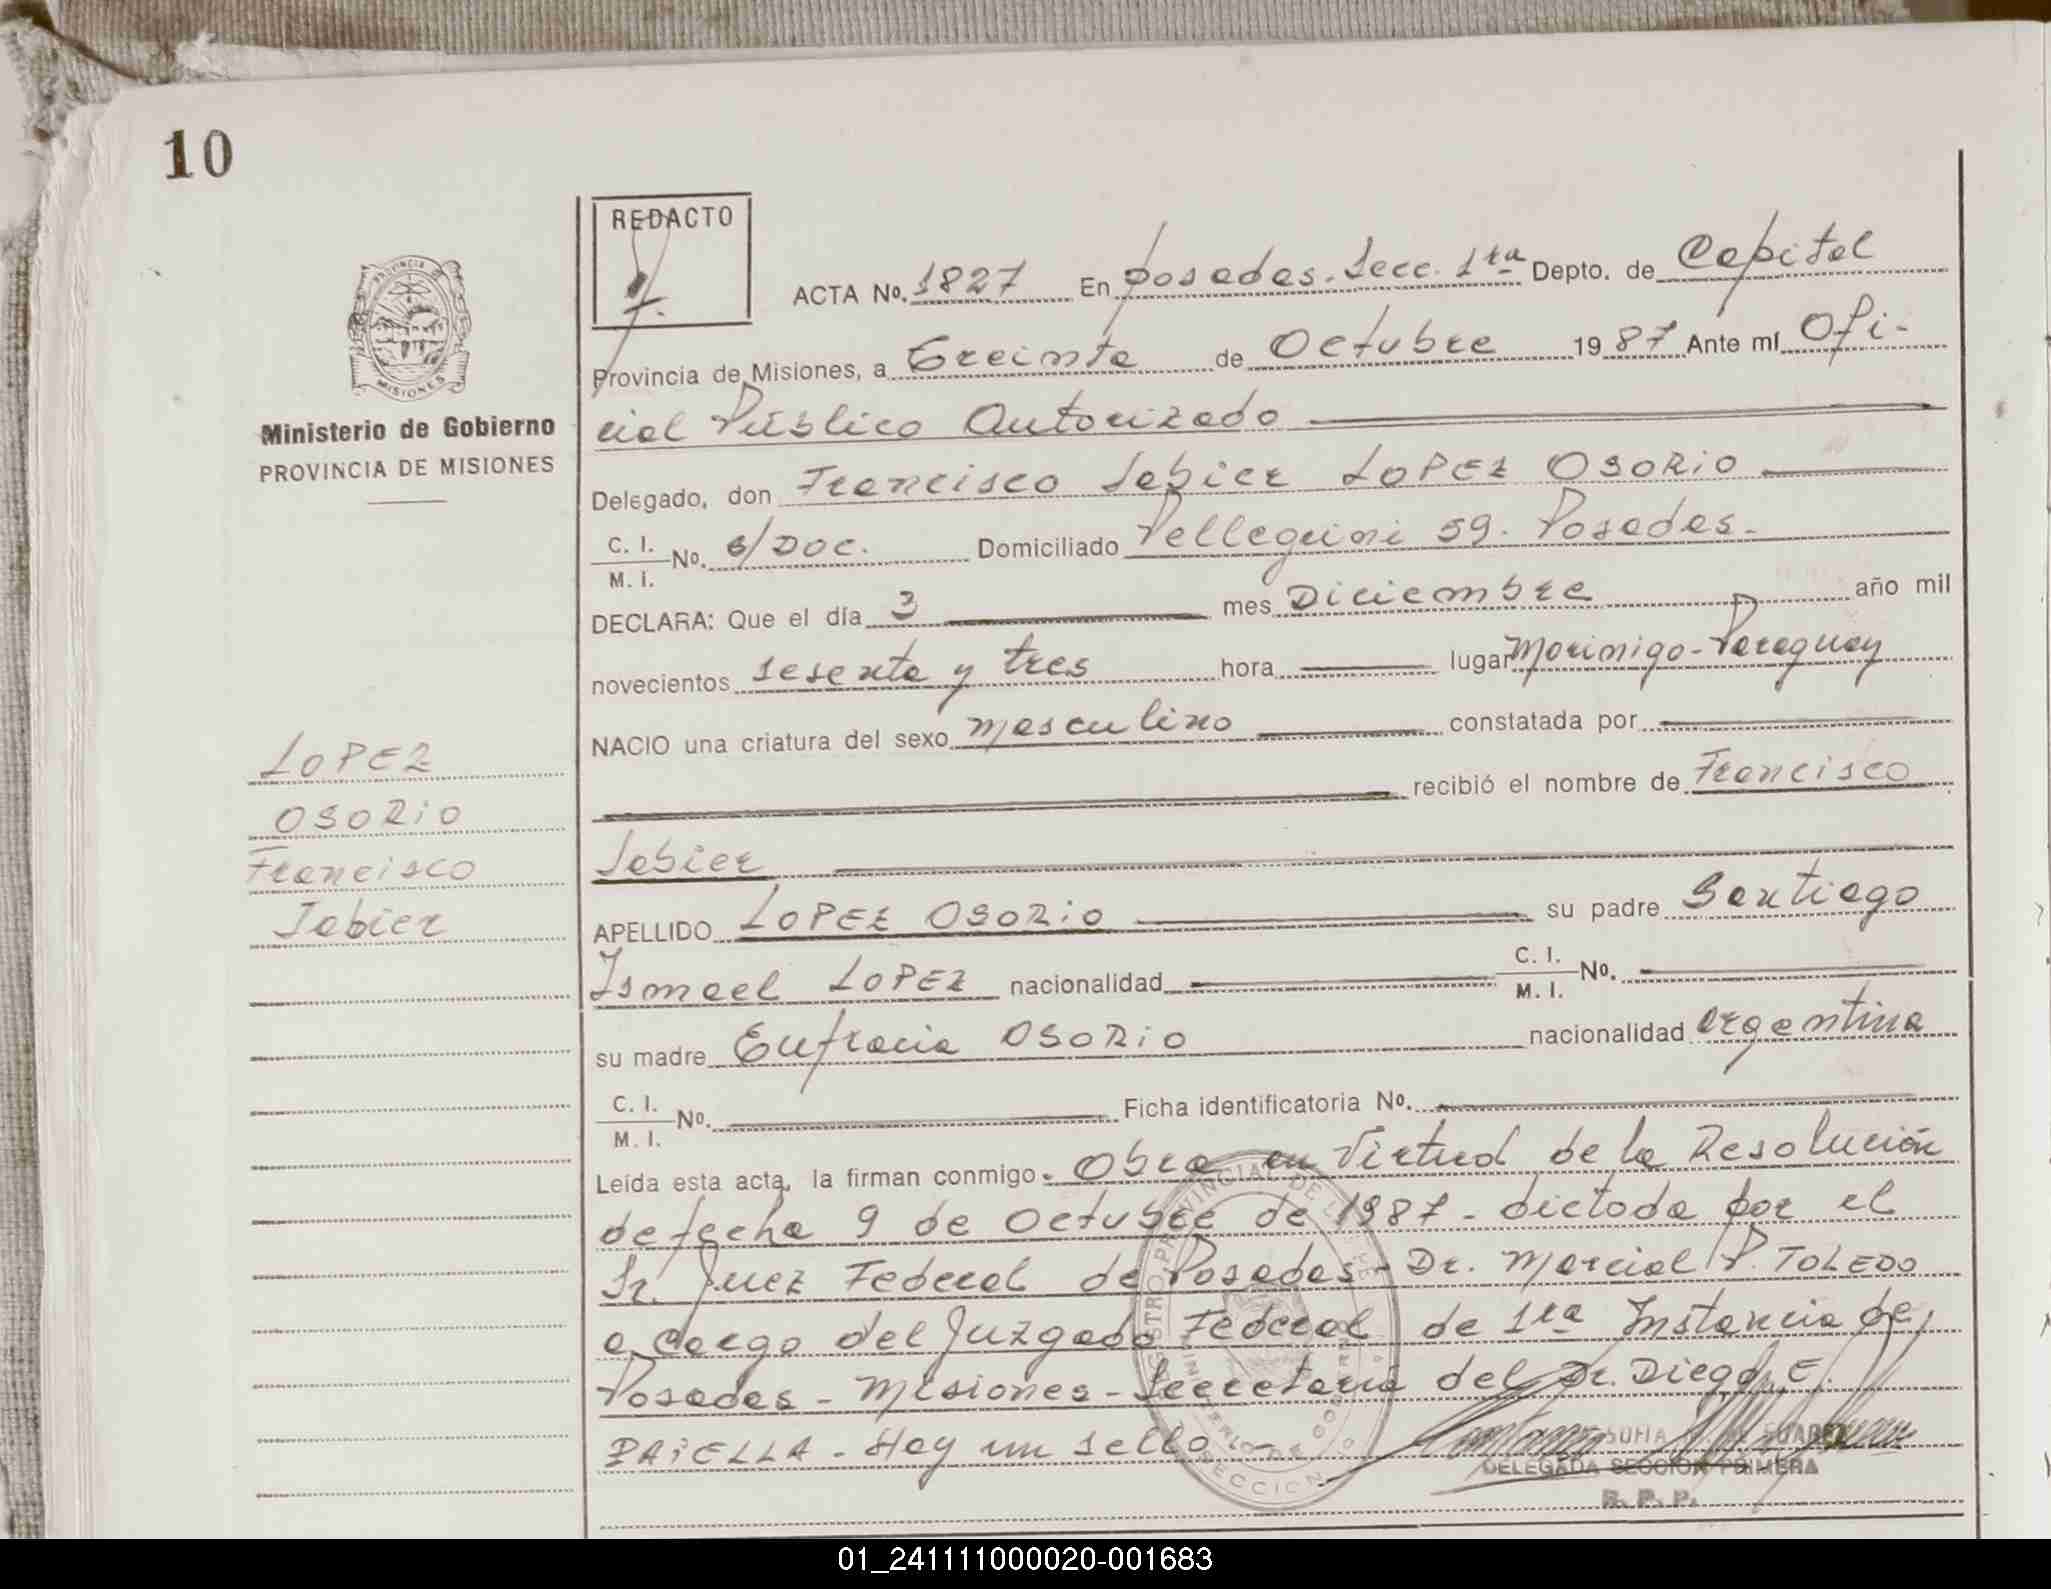 10
REDACTO
PROVINCIA DE
MISIONES
Ministerio de Gobierno
PROVINCIA DE MISIONES
ACTA No. 1827 En posadas. Secc. 1ra Depto. de Capital
Provincia de Misiones, a treinta de Octubre 19 87 Ante mí Ofi-
cial Público Autorizado
Delegado, don Francisco Jabier LOPEZ OSORIO
C. I.
M. I. No. s/Doc. Domiciliado Pellegrini 59. Posadas.
DECLARA: Que el día 3 mes Diciembre año mil
novecientos sesenta y tres hora lugar Morinigo-Paraguay
NACIO una criatura del sexo masculino constatada por
recibió el nombre de Francisco
Jabier
APELLIDO LOPEZ OSORIO su padre Santiago
Ismael LOPEZ nacionalidad C. I.
M. I. No.
su madre Eufracia OSORIO nacionalidad argentina
C. I.
M. I. No. Ficha identificatoria No.
Leída esta acta, la firman conmigo. Obra en Virtud de la Resolución
de fecha 9 de Octubre de 1987 - dictada por el
Sr. Juez Federal de Posadas - Dr. Marcial P. TOLEDO
a cargo del Juzgado Federal de 1ra Instancia de,
Posadas - Misiones - Secretaría del Dr. Diego E.
PAIELLA - Hay un sello -
LOPEZ
OSORIO
Francisco
Jabier
SOFIA DE SUAREZ
DELEGADA SECCION PRIMERA
R. P. P.
01_241111000020-001683